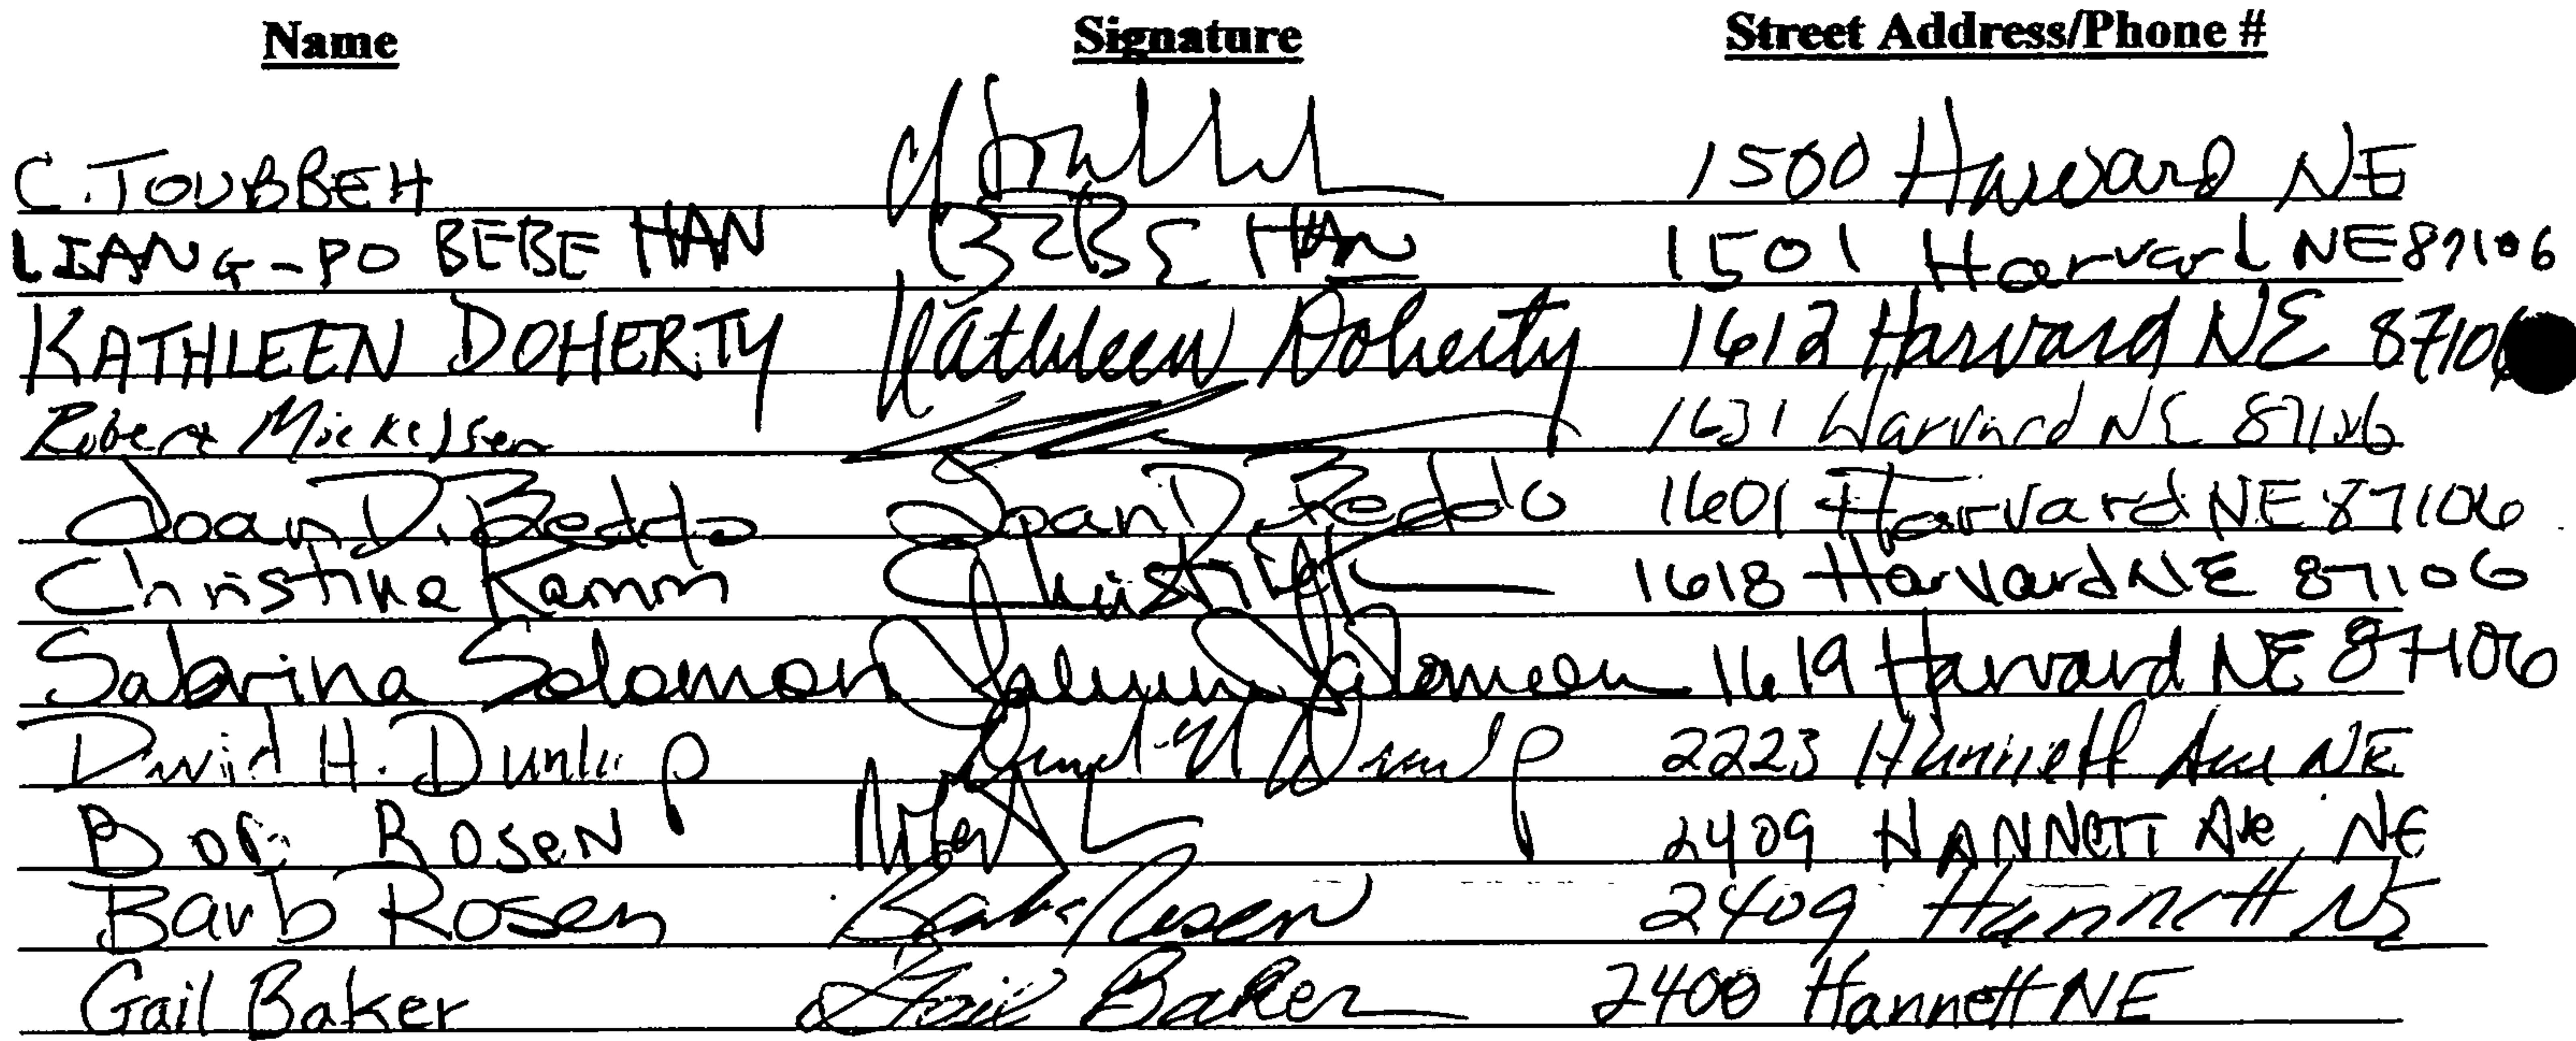 Name Signature Street Address/Phone #
C. TOUBBEH 1500 Harvard NE
LIANG-PO BEBE HAN BEBE HAN 1501 Harvard NE 87106
KATHLEEN DOHERTY Kathleen Doherty 1612 Harvard NE 87106
Robert Mickelsen 1631 Harvard NE 87106
Joan D. Reddo Joan D. Reddo 1601 Harvard NE 87106
Christine Kamm Christine K 1618 Harvard NE 87106
Sabrina Solomon Sabrina Solomon 1619 Harvard NE 87106
David H. Dunlap David H Dunlap 2223 Hannett Ave NE
Bob Rosen 2409 HANNETT Ave, NE
Barb Rosen Barb Rosen 2409 Hannett NE
Gail Baker Gail Baker 2400 Hannett NE